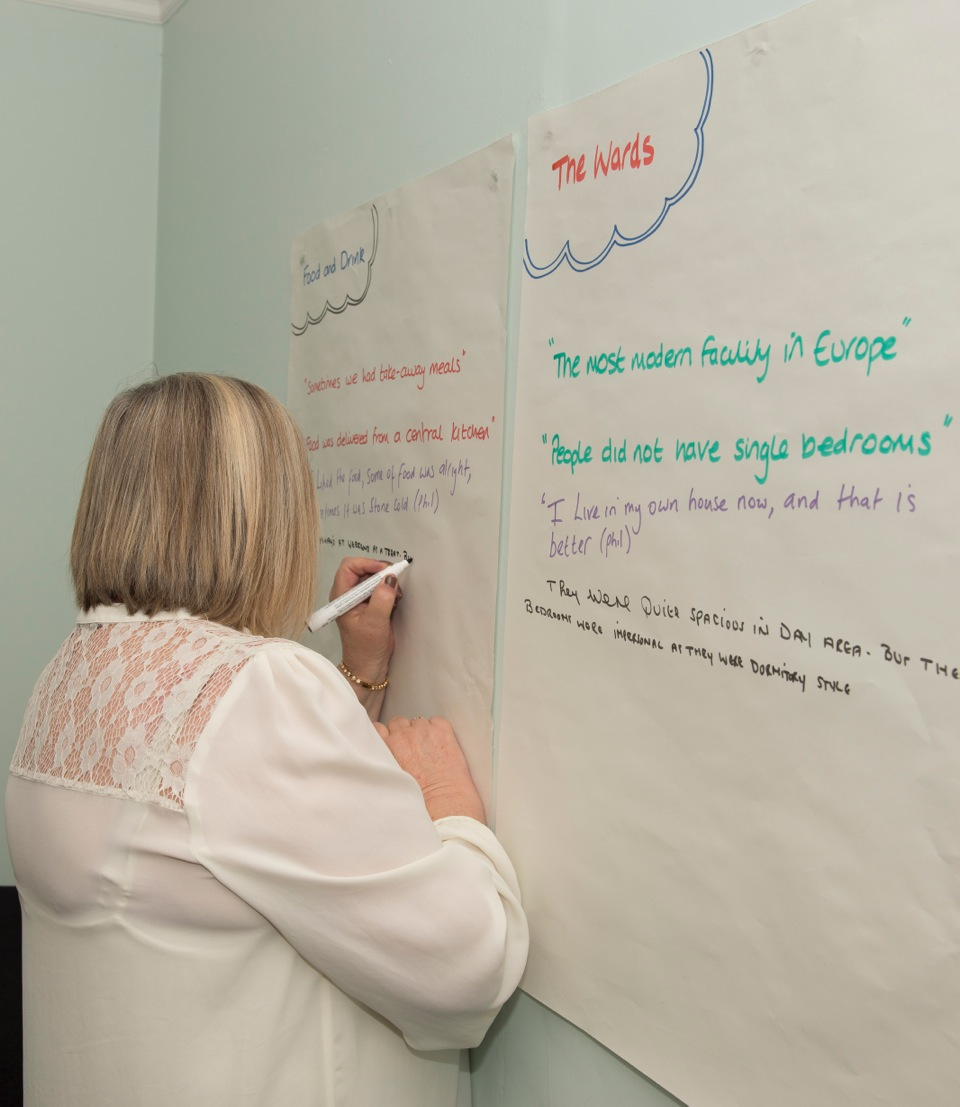 Food and Drink
"Sometimes we had take-away meals"
Food was delivered from a central kitchen"
Liked the food, some of food was alright,
times it was Stone Cold (Phil)
AT WEEKENDS AS A TREAT. Bu
The Wards
"The most modern facility in Europe"
"People did not have single bedrooms"
"I Live in my own house now, and that is
better (phil)
They WERE QUITE SPACIOUS IN DAY AREA. BUT THE
BEDROOMS WORE IMPERSONAL AS THEY WERE DORMITORY STYLE